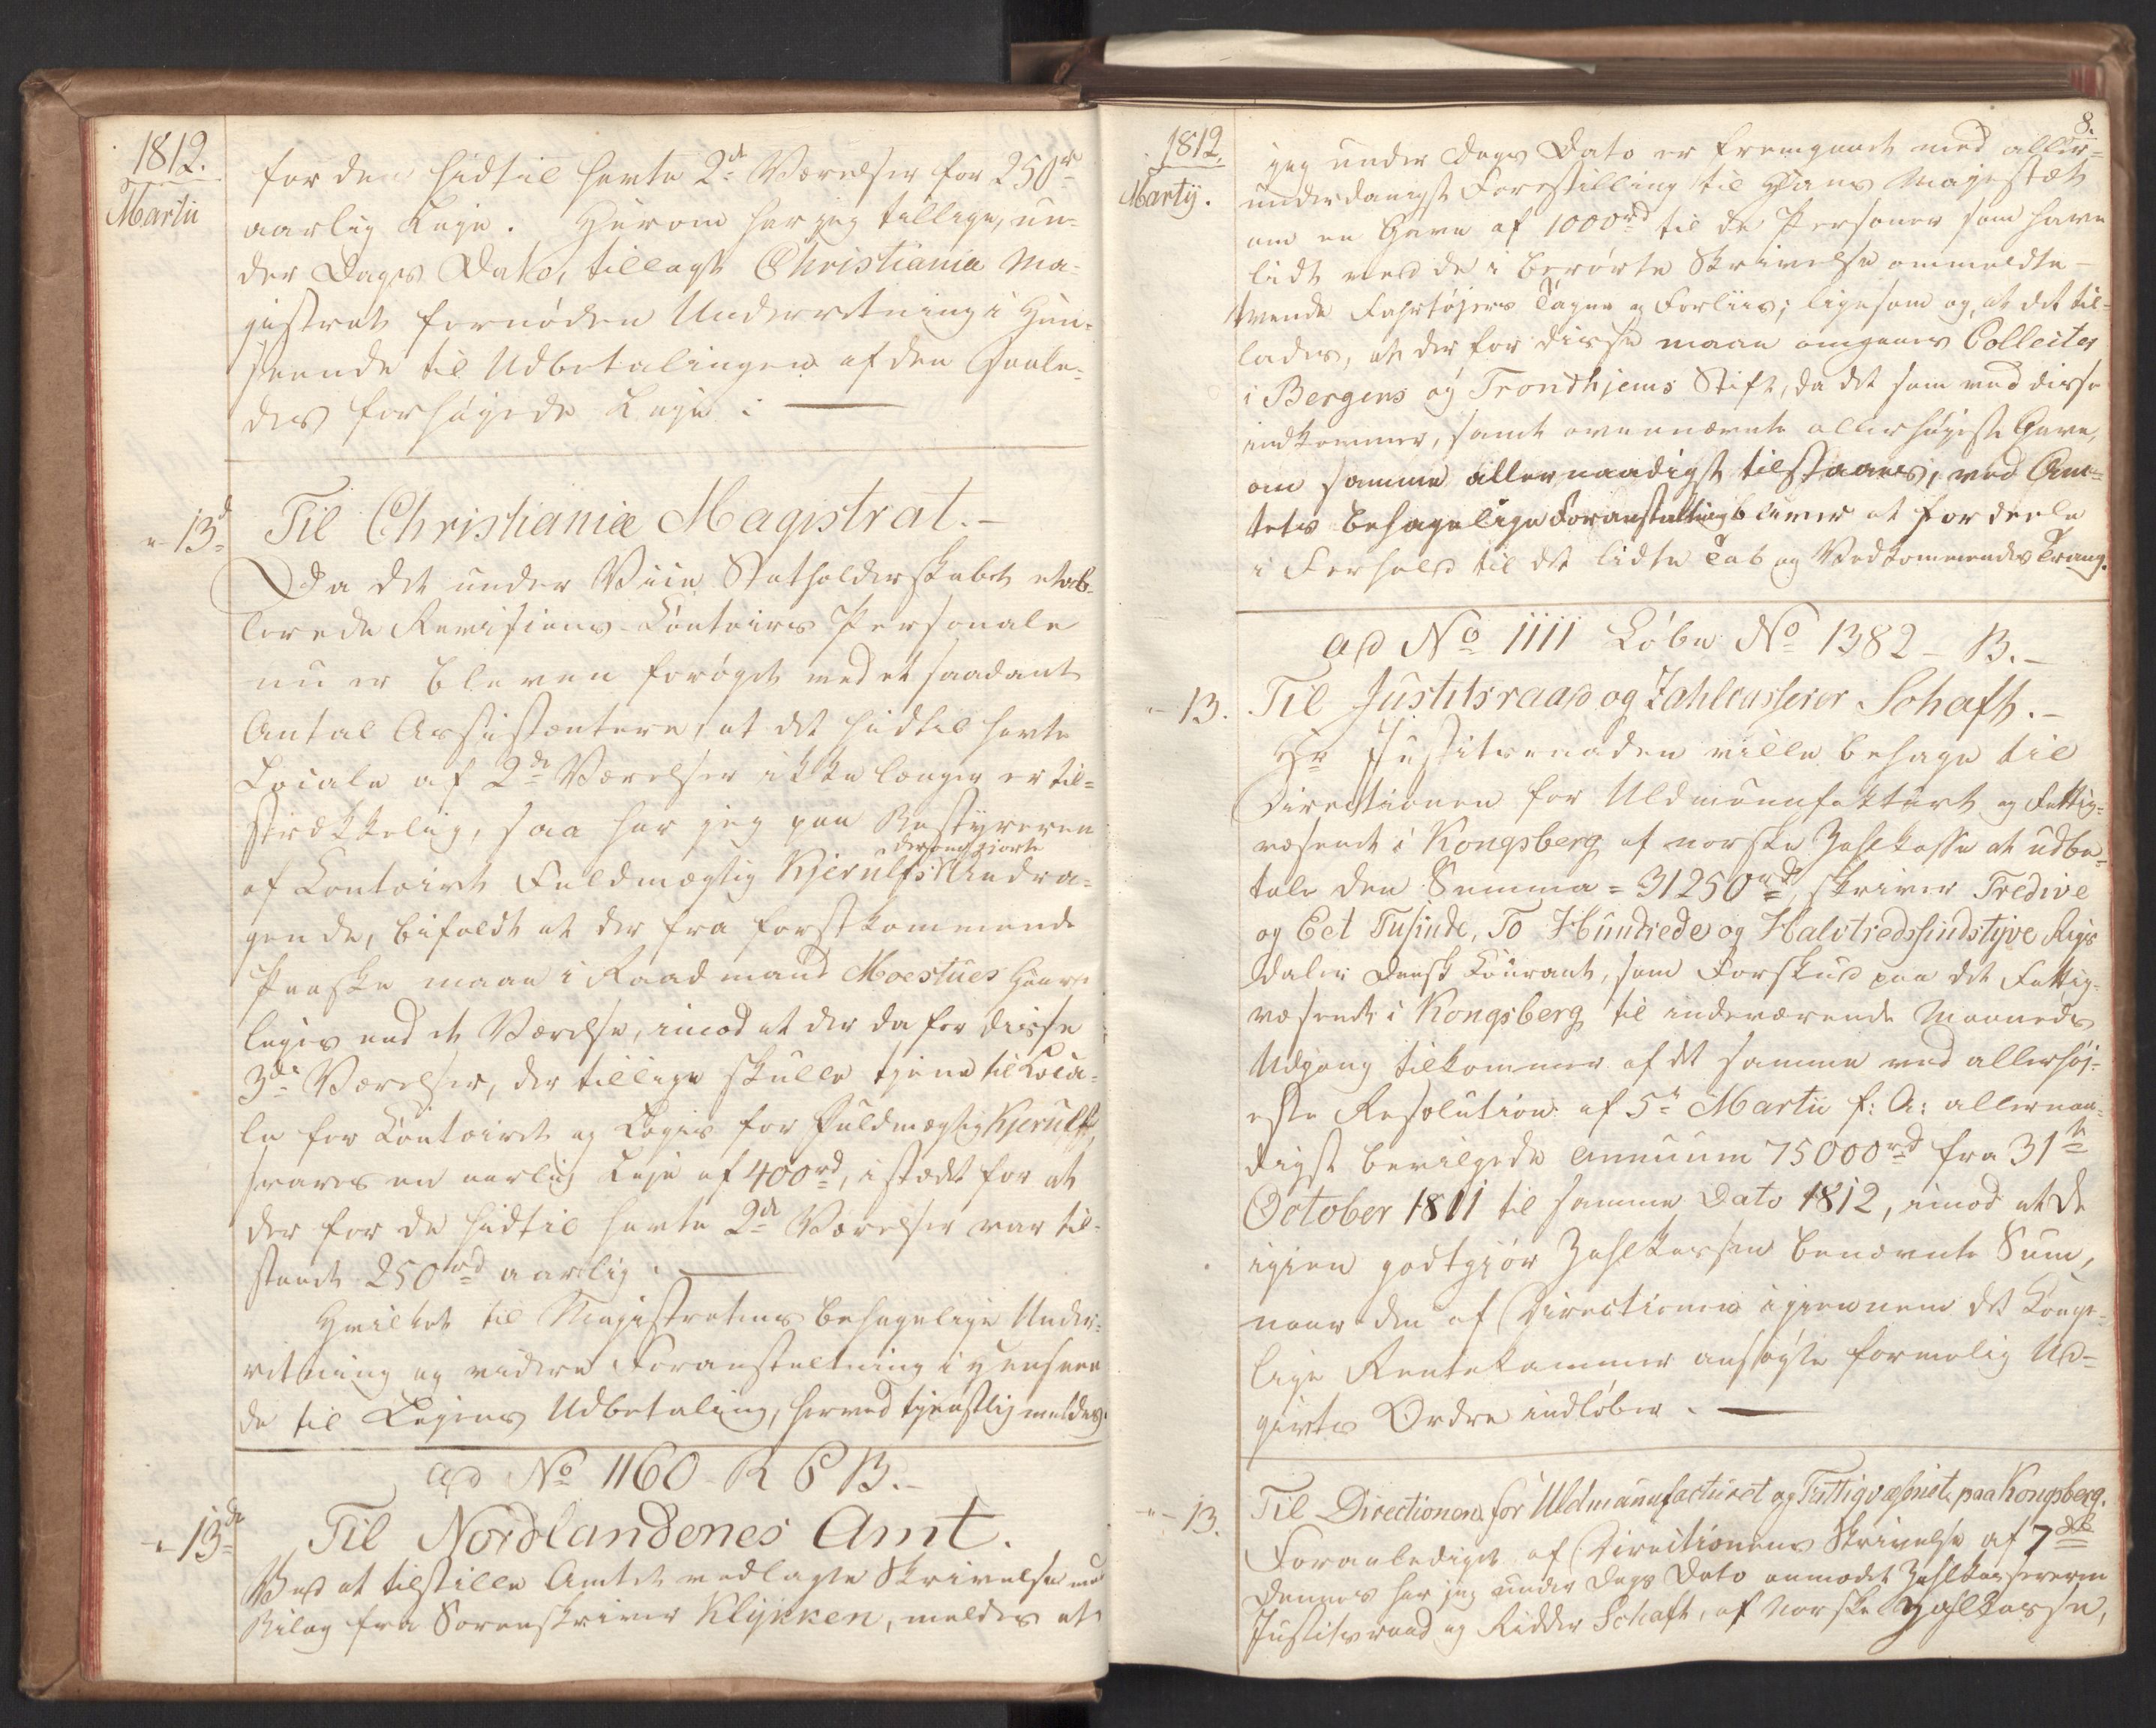 1812.
Martii
for den hidtil havte 2de Værelser for 250rd
aarlig Leje. Herom har jeg tillige, un-
der Dags Dato, tillagt Christiania Ma-
gistrat fornøden Underretning i Hen-
seende til Udbetalingen af den saale-
des forhøjede Leje. —
"- 13d
Til Christiania Magistrat. -
Da det under Vice Statholderskabet etab-
lerede Revisions-Contoirs Personale
nu er bleven forøget med et saadant
Antal Assistentere, at det hidtil havte
Locale af 2de Værelser ikke længer er til-
strækkelig, saa har jeg paa Bestyreren
af Contoiret Fuldmægtig Kjerulfs derom gjorte Andra-
gende, bifaldt at der fra førstkommende
Paaske maae i Raadmand Moestues Gaard
lejes end et Værelse, imod at der da for disse
3de Værelser, der tillige skulle tjene til Loca-
le for Contoiret og Logis for Fuldmægtig Kjerulf,
svares en aarlig Leje af 400rd, istædet for at
der for de hidtil havte 2de Værelser var til-
staaet 250rd aarlig. —
Hvilket til Magistratens behagelige Under-
retning og videre Foranstaltning i Henseen
de til Lejens Udbetaling, herved tjenstlig meldes.
ad No 1160 - R P B. -
"- 13de
Til Nordlandenes Amt.
Ved at tilstille Amtet vedlagte Skrivelse med
Bilag fra Sorenskriver Klykken, meldes at
8.
1812.
Martij.
jeg under Dags Dato er fremgaaet med aller-
underdanigst Forestilling til Hans Majestæt
om en Gave af 1000rd til de Personer som have
lidt ved de i berørte Skrivelse ommeldte
tvende Fartøjers Tagne og Forliis; ligesom og, at det til-
lades, at der for disse maae omgaaes Collecter
i Bergens og Trondhjems Stift, da det som ved disse
indkommer, samt ovennævnte allerhøjeste Gave,
om samme allernaadigst tilstaaes, ved Am-
tets behagelige Foranstaltning bliver at fordeele
i Forhold til det lidte Tab og Vedkommendes Trang.
ad No 1111 Løbe No 1382 - B. -
"- 13.
Til Justitsraad og Zahlcasserer Schaft. -
Hr Justitsraaden ville behage til
Directionen for Uldmanufakturet og Fattig-
væsenet i Kongsberg af norske Zahlkasse at udbe-
tale den Summa = 31250rd, skriver Tredive
og Eet Tusinde, To Hundrede og Halvtredssindstyve Rigs
daler Dansk Courant, som Forskud paa det Fattig-
væsenet i Kongsberg til indeværende Maaneds
Udgang tilkommer af det samme ved allerhøj-
este Resolution af 5te Martii f: A: allernaa-
digst bevilgede annuum 75000rd fra 31te
October 1811 til samme Dato 1812, imod at de
igien godtgjør Zahlkassen benævnte Sum,
naar den af Directionen igiennem det Konge-
lige Rentekammer ansøgte formelig Ud-
givts Ordre indløber. —
"- 13.
Til Directionen for Uldmanufacturet og Fattigvæsenet paa Kongsberg.
Foranlediget af Directionens Skrivelse af 7de
dennes har jeg under Dags Dato anmodet Zahlkassereren
Justitsraad og Ridder Schaft, af Norske Zahlkasse,